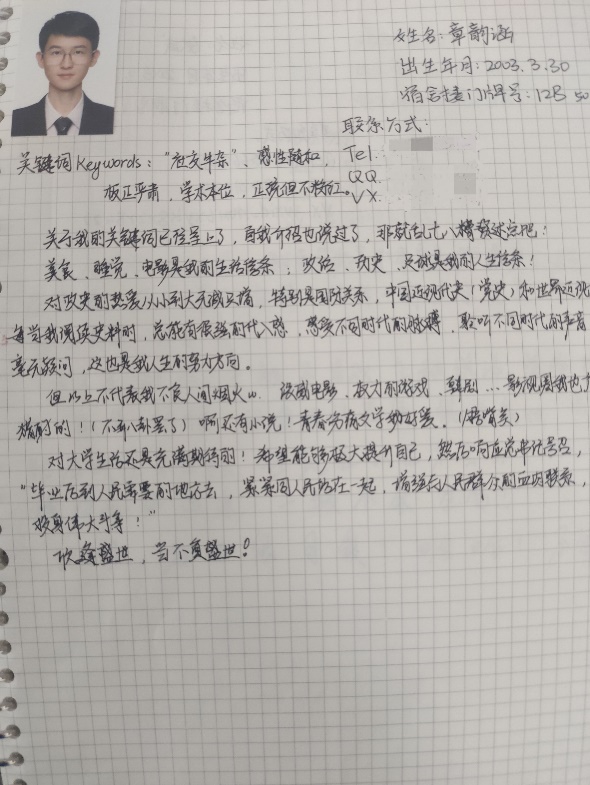 姓名:章韵涵
出生年月:2003.3.30
宿舍楼门牌号:12B 50
联系方式:
Tel.
QQ
VX.
关键词Keywords:“ 牛杂”、感性随和,
板正严肃,学术本位,正统但不粉红。
关于我的关键词已经呈上了,自我介绍也说过了,那就乱七八糟 述完吧!
美食、睡觉、电影是我的生活信条;政治、历史、足球是我的人生信条!
对政史的热爱从小到大无减只增,特别是国际关系,中国近现代史(党史)和世界近现
每当我阅读史料时,总能有很强的代入感,感受不同时代的脉搏,聆听不同时代的声音
毫无疑问,这也是我人生的努力方向。
但以上不代表我不食人间烟火。漫威电影、权力的游戏、韩剧…影视圈我也
猎的!(不八卦罢了)啊还有小说!青春伤痛文学 好爱。(捂嘴笑)
对大学生活还是充满期待的!希望能够极大提升自己,然后响应总书记号召,
“毕业后到人民需要的地方去,紧紧同人民站在一起,增强与人民群众的血肉联系,
投身伟大斗争!”
欣逢盛世,当不负盛世!